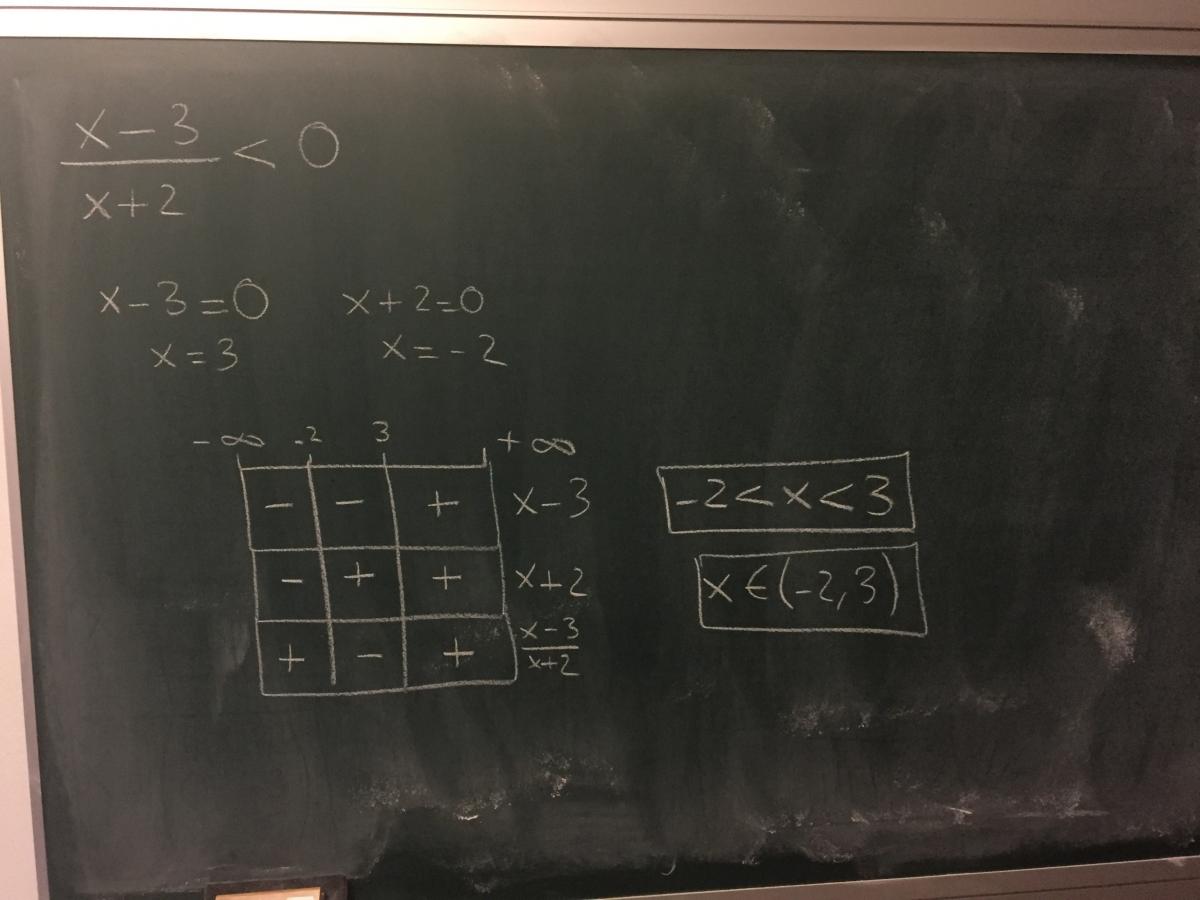 x-3
x+2 < 0
x-3=0 x+2=0
x=3 x=-2
-∞ -2 3 +∞
- - + x-3 -2<x<3
- + + x+2 x∈(-2,3)
+ - + x-3
x+2